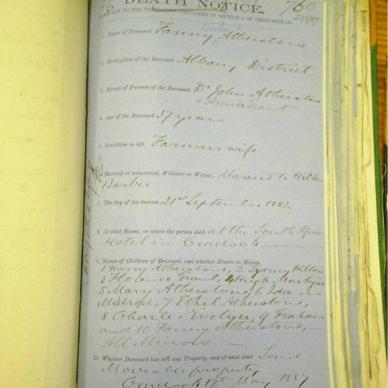 DEATH NOTICE.
760
1. Name of Deceased Fanny Atherstone
2. Birthplace of the Deceased Albany District
3. Names of Parents of the Deceased Dr John Atherstone
4. Age of the Deceased 37 years
5. Condition in life Farmers wife
6. Married or unmarried, Widower or Widow, Married to Hilton
Barber
7. The day of the decease 21st September 1882
8. At what House, or where the person died at the South African
Hotel in Cradock
9. Names of Children of Deceased, and whether Minors or Majors
1 Harry Atherstone, 2 Sydney Hilton
3 Florence 4 Hugh
5 Mary Atherstone, 6
7 Ethel Atherstone,
8 Charles Evelyn, 9 Graham
and 10 Fanny Atherstone,
All Minors
10. Whether Deceased has left any Property, and of what kind Some
Moveable property
Cradock 17th May 188